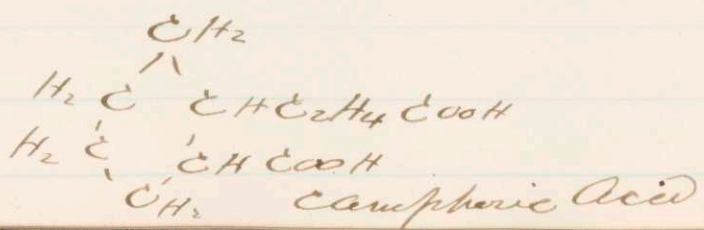 CH2
H2 C CHC2H4 COOH
H2 C CH COOH
CH2 Camphoric Acid